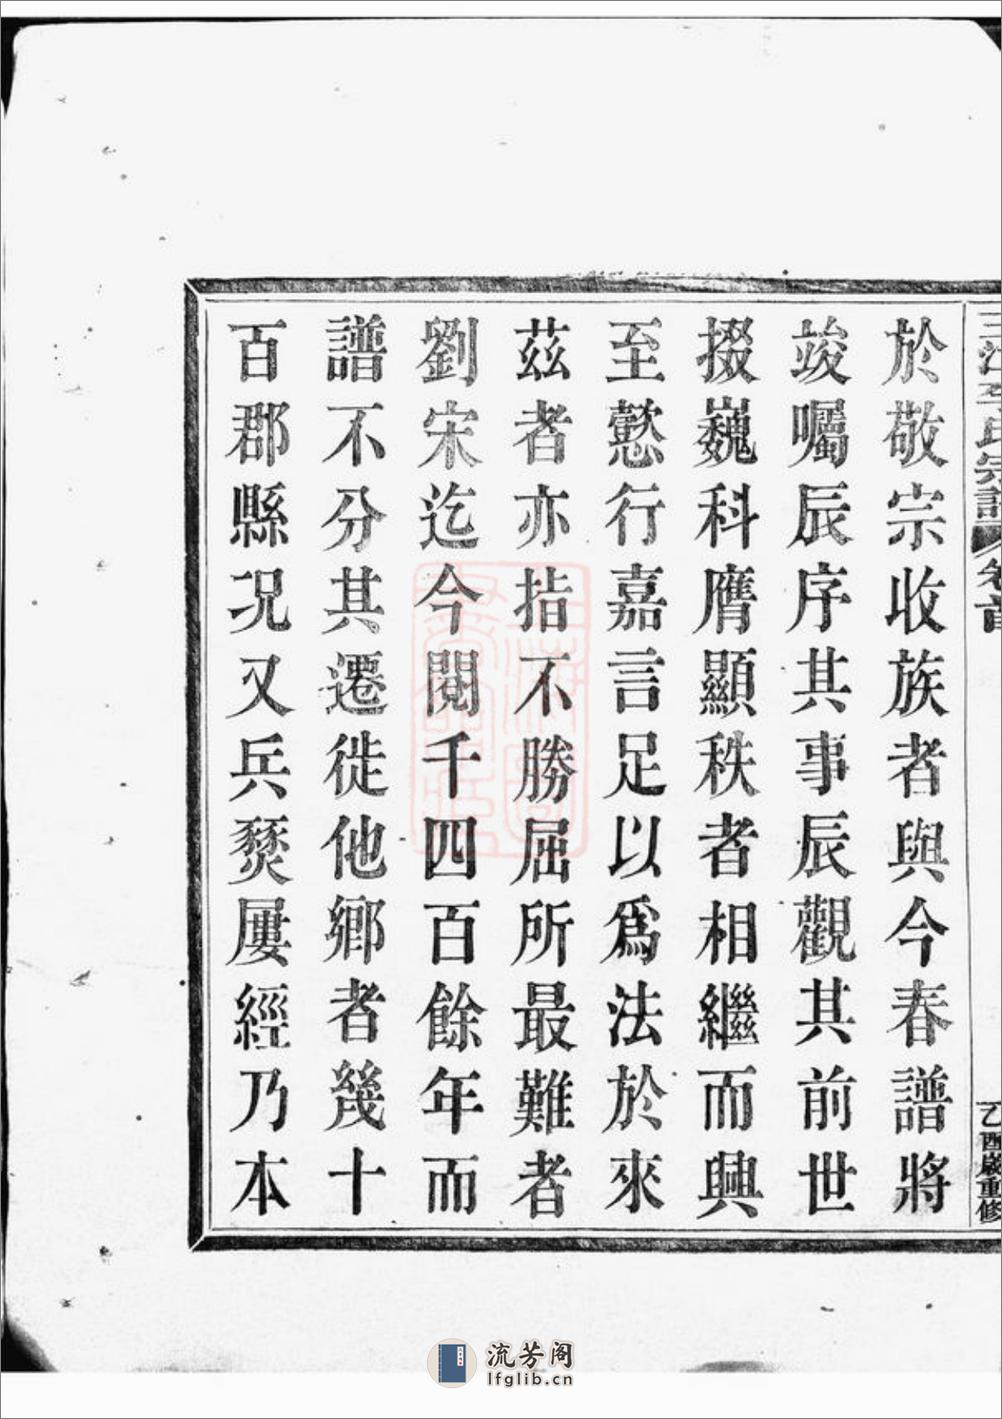 三江李氏宗譜 卷首
乙酉歲重修
於敬宗收族者與今春譜將
竣囑辰序其事辰觀其前世
掇巍科膺顯秩者相繼而興
至懿行嘉言足以爲法於來
茲者亦指不勝屈所最難者
劉宋迄今閱千四百餘年而
譜不分其遷徙他鄉者幾十
百郡縣況又兵燹屢經乃本
流芳阁
lfglib.cn